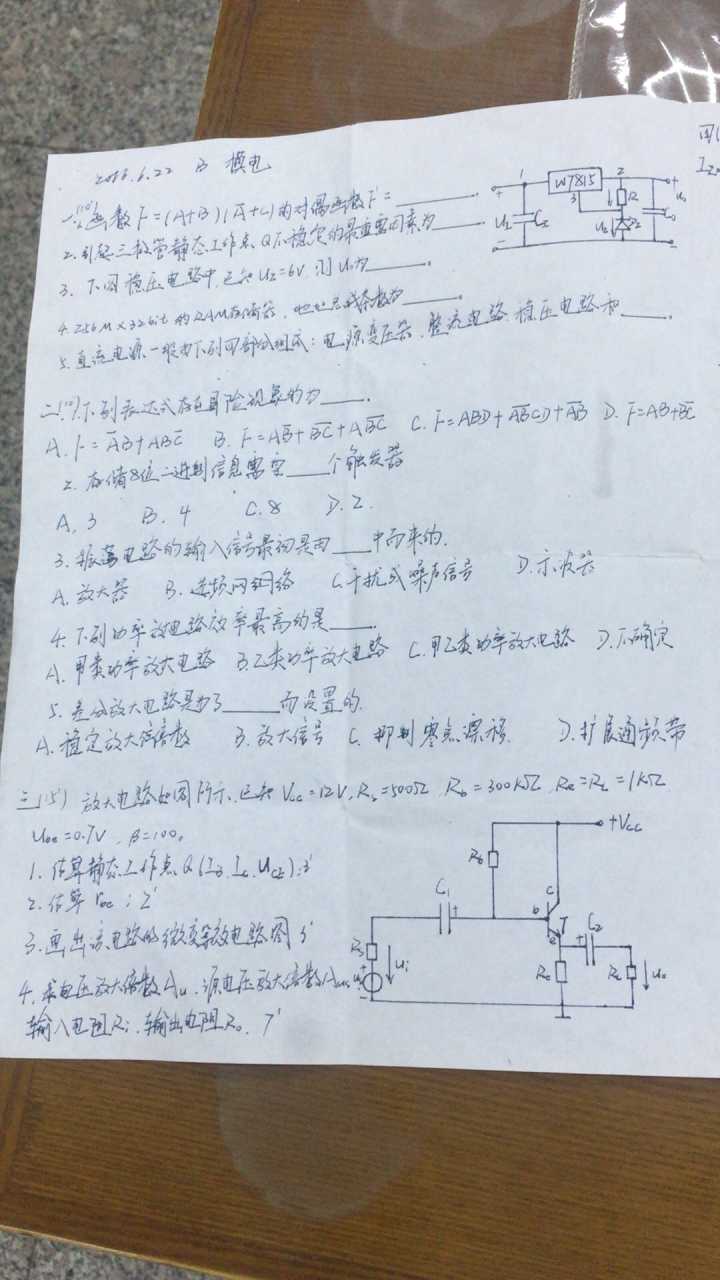 2016.6.22 B 模电
一(10')1.函数F=(A+B)(Ā+C)的对偶函数F'=______.
2.引起三极管静态工作点Q不稳定的最重要因素为______.
3.下图稳压电路中,已知Uz=6V,则Uo为______.
4.256M×32bit的RAM存储器,地址总线条数为______.
5.直流电源一般由下列四部分组成:电源变压器、整流电路、稳压电路和____.
1 W7815 2
3 R
+ + U₁ Uz Dz Co uo
- -
回
二(10')下列表达式存在冒险现象的为____.
2.存储8位二进制信息需要____个触发器
A.3 B.4 C.8 D.2.
3.振荡电路的输入信号最初是由___中而来的.
A.放大器 B.选频网络 C.干扰或噪声信号 D.示波器
4.下列功率放电路效率最高的是____.
A.甲类功率放大电路 B.乙类功率放大电路 C.甲乙类功率放大电路 D.不确定
5.差分放大电路是为了_____而设置的.
A.稳定放大倍数 B.放大信号 C.抑制零点漂移 D.扩展通频带
三(15') 放大电路如图所示,已知Vcc=12V,Rs=500Ω,Rb=300kΩ,Re=RL=1kΩ
Ube=0.7V,β=100.
1.估算静态工作点Q(IB、Ic、UCE);3'
2.估算rbe;2'
3.画出该电路的微变等效电路图 3'
4.求电压放大倍数Au、源电压放大倍数Aus、
输入电阻Ri、输出电阻Ro. 7'
+Vcc
Rb
C1 + b c T e C2 +
Rs us ui Re RL uo